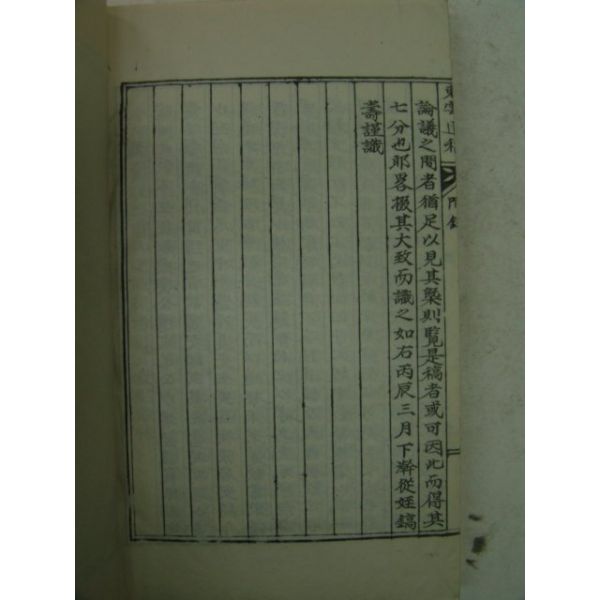 論議之間者猶足以見其槩則覽是稿者或可因此而得其
七分也耶畧掇其大致而識之如右丙辰三月下澣從姪鎬
壽謹識
附錄